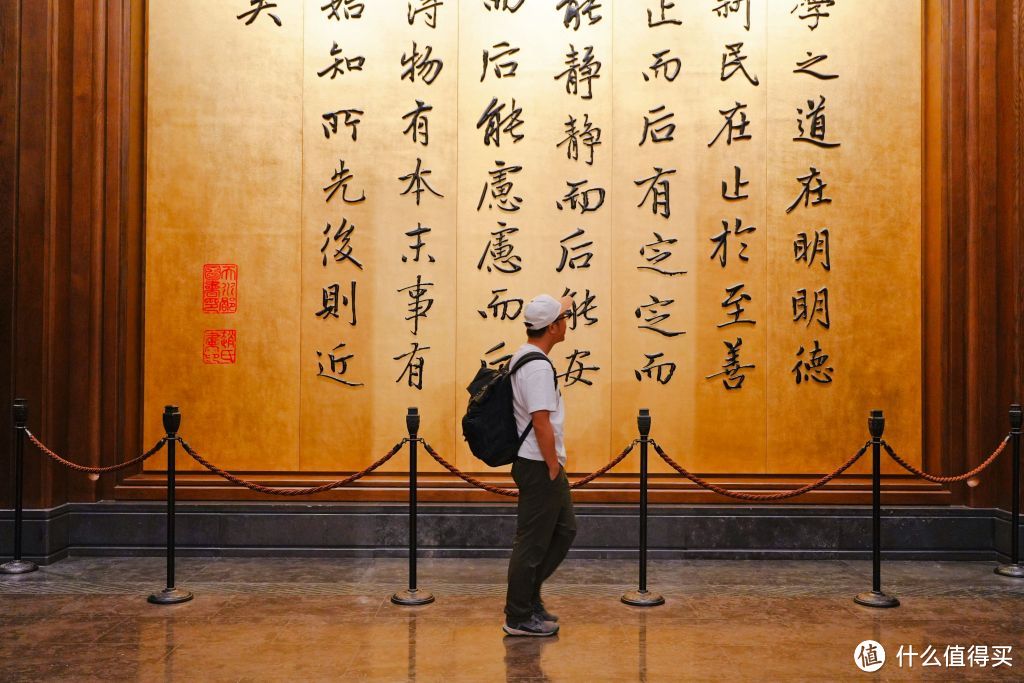 學之道在明明德
新民在止於至善
止而后有定定而
能靜靜而后能安
而后能慮慮而后
得物有本末事有
始知所先後則近
矣
天水郡圖書印
趙氏書印
值 什么值得买